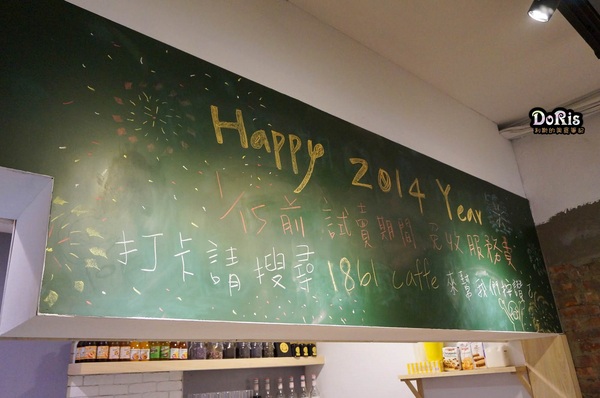 Happy 2014 Year
1/15前 試賣期間 免收服務費
打卡請搜尋 1861 caffe 來幫我們按讚
DoRis